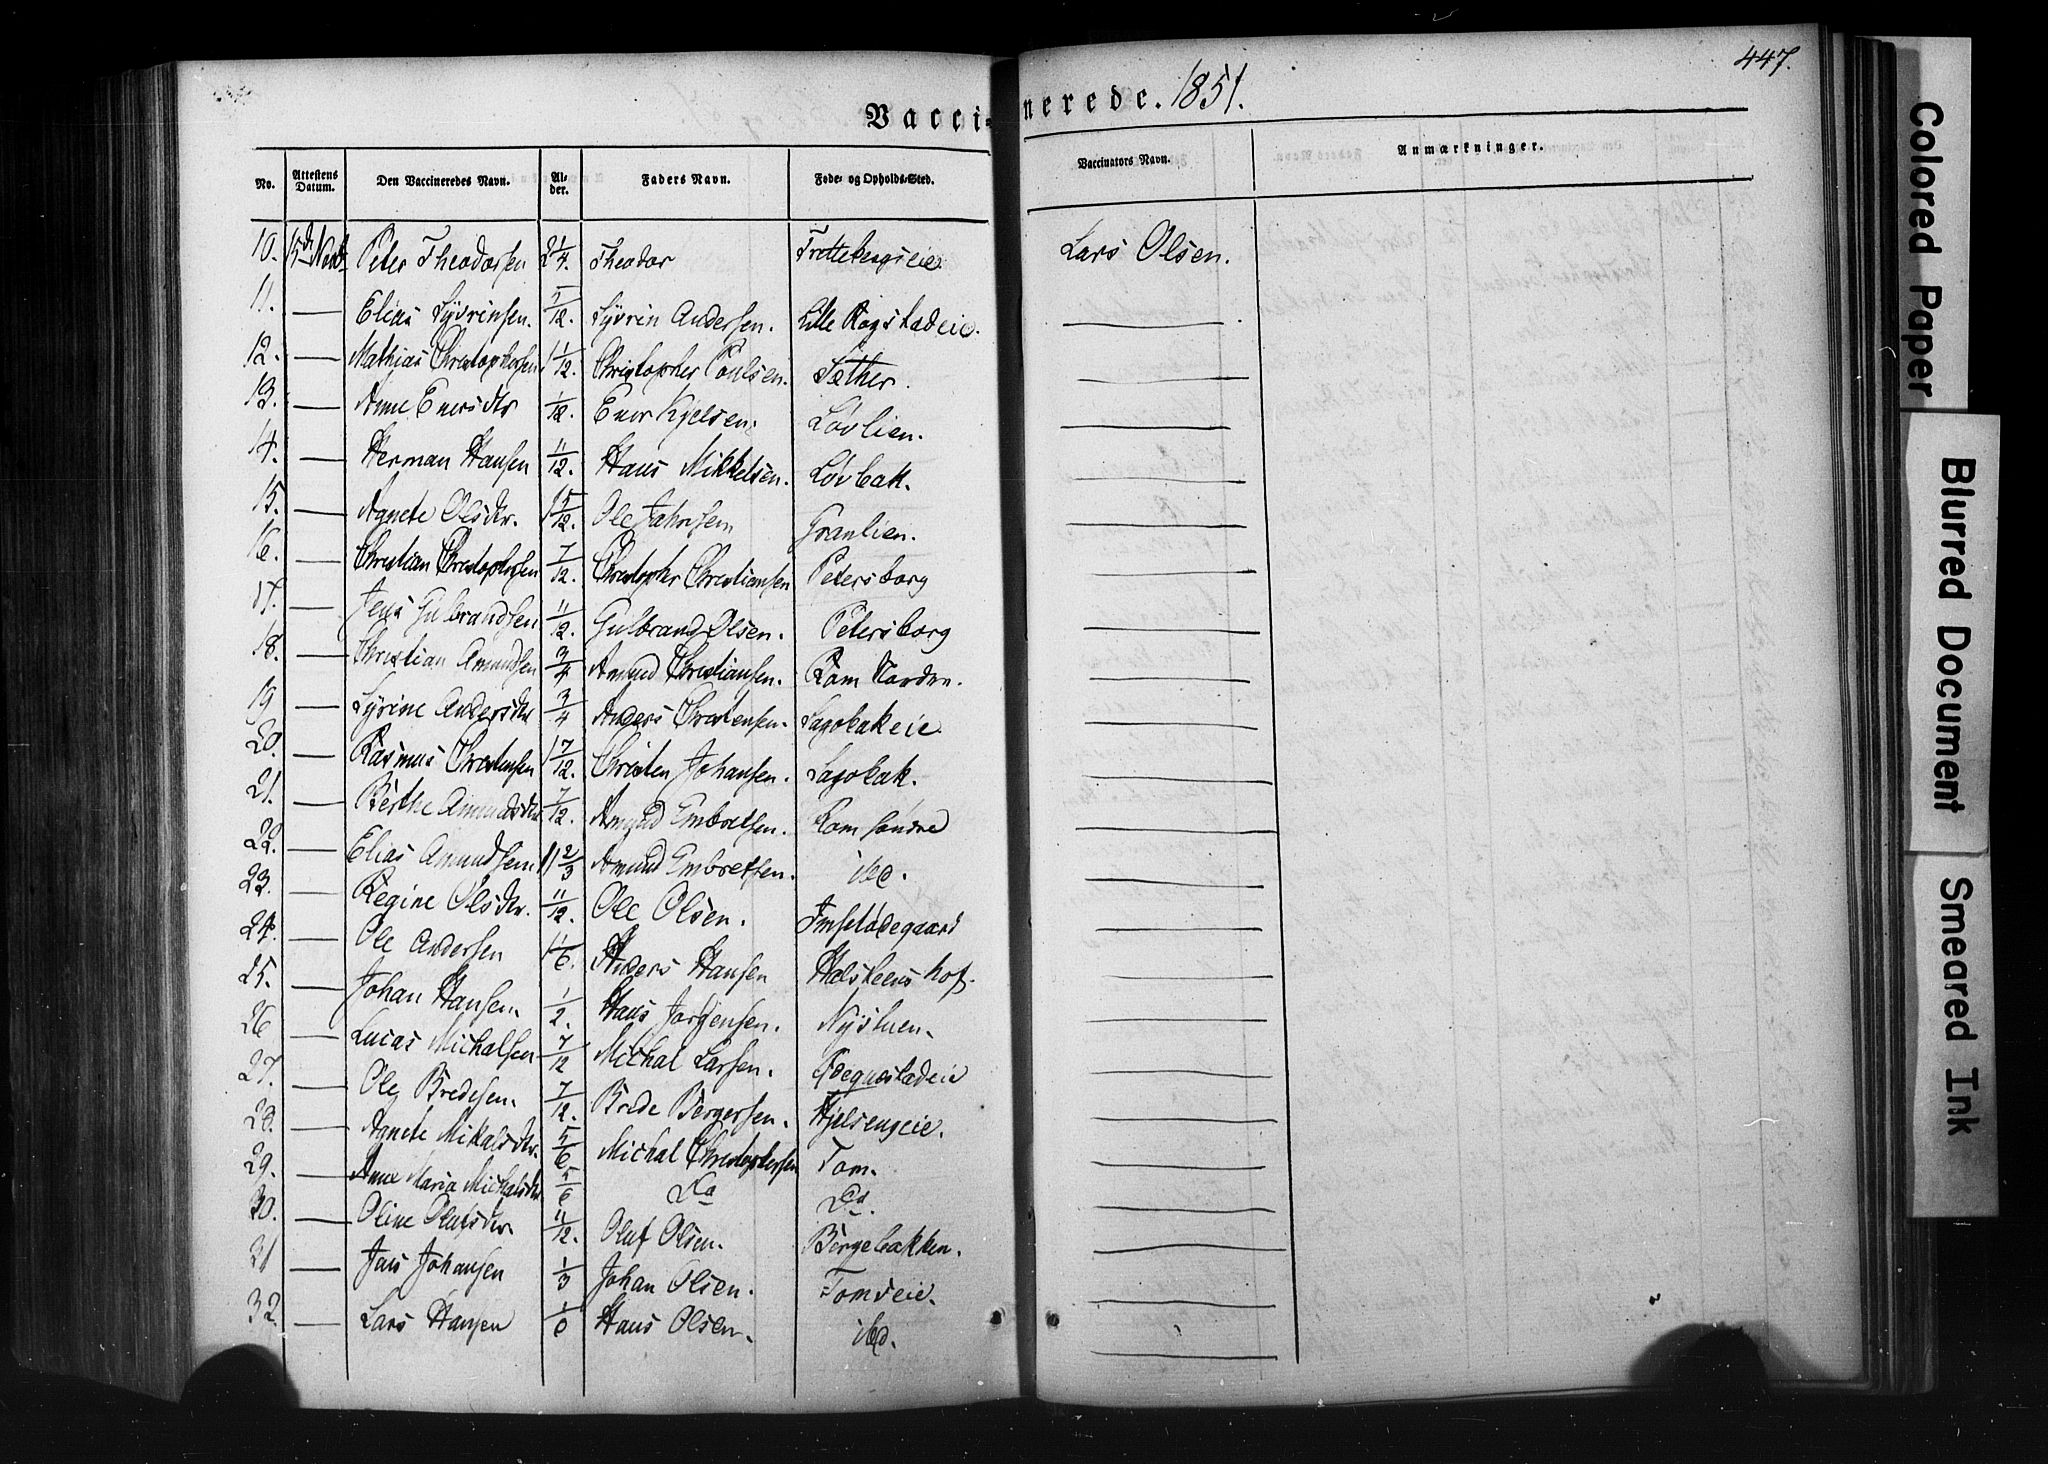 447.
Vacci- nerede. 1851.
No. Attestens Datum. Den Vaccineredes Navn. Al- der. Faders Navn. Føde- og Opholds-Sted. Vaccinators Navn. Anmærkninger.
10. 15de Peter Theodorsen 2 1/4. Theodor Lars Olsen.
11. — Elias Syvrinsen. 5/12. Syvrin Andersen. Lille Rogstadeie. —
12. — Mathias Christophersen 1 1/12. Christopher Poulsen. Sæther. —
13. — Anne Enersdtr /12. Ener Kjelsen. Løvlien. —
14. — Herman Hansen 11/12. Hans Mikkelsen. Løvbak. —
15. — Agnete Olsdtr. 1 5/12. Ole Granlien. —
16. — Christian Christophersen 7/12. Christopher Christiansen Petersborg —
17. — Jens Gulbrandsen 11/12. Gulbrand Olsen. Petersborg —
18. — Christian Amundsen 3/4 Amund Christiansen. Kom Nordre. —
19 — Syrine Andersdtr 3/4 Anders Christensen. Lagobakeie —
20. — Rasmus Christensen 1 7/12. Christen Johansen. Lagobak. —
21. — Berthe Amundsdtr 7/12. Amund Embretsen. Kom søndre —
22. — Elias Amundsen 11 2/3 Amund Embretsen. ibd. —
23. — Regine Olsdtr. 11/12. Ole Olsen. Imselødegaard —
24. — Ole Andersen 1 1/6. Anders Hansen Halsteenshof. —
25. — Johan Hansen. 1/2. Hans Jørgensen. Nystuen. —
26 — Lucas Michalsen 7/12 Michal Larsen. —
27. — Ole Bredesen. 7/12. Brede Bergersen. Hjelsengeie. —
28. — Agnete Mikalsdtr. 5/6 Michal Christophersen Tom. —
29. — Anne Maria Michalsdtr 5/6 Do Do. —
30. — Oline Olufsdtr. 11/12. Oluf Olsen. Bergebakken. —
31 — Jens Johansen 1/3 Johan Olsen. Tomseie. —
32. — Lars Hansen 1/6 Hans Olsen. ibd. —
Colored Paper
Blurred Document
Smeared Ink